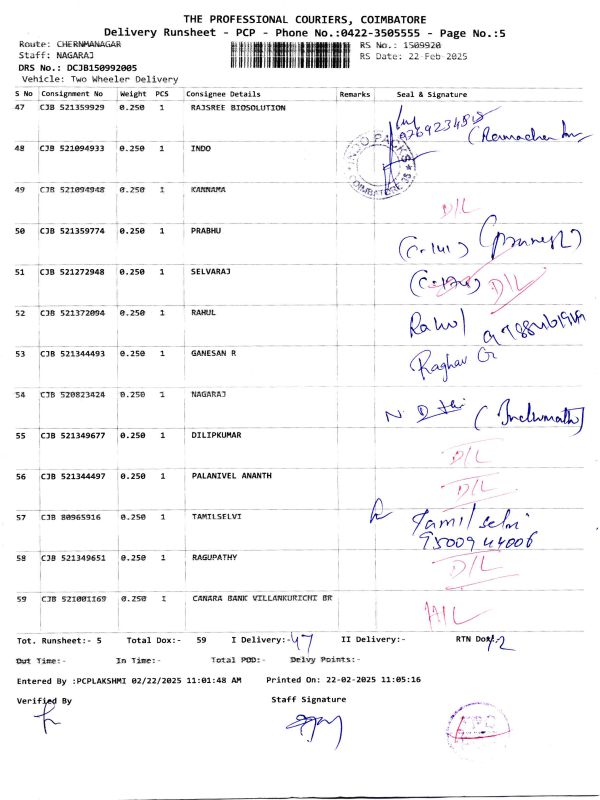 THE PROFESSIONAL COURIERS, COIMBATORE
Delivery Runsheet - PCP - Phone No.:0422-3505555 - Page No.:5
Route: CHERNMANAGAR RS No.: 1509920
Staff: NAGARAJ RS Date: 22-Feb-2025
DRS No.: DCJB150992005
Vehicle: Two Wheeler Delivery
S No Consignment No Weight PCS Consignee Details Remarks Seal & Signature
47 CJB 521359929 0.250 1 RAJSREE BIOSOLUTION
48 CJB 521094933 0.250 1 INDO
INDO PACKS
COIMBATORE 35
49 CJB 521094948 0.250 1 KANNAMA D/L
50 CJB 521359774 0.250 1 PRABHU
51 CJB 521272948 0.250 1 SELVARAJ D/L
52 CJB 521372094 0.250 1 RAHUL Rahul
53 CJB 521344493 0.250 1 GANESAN R Raghav G
54 CJB 520823424 0.250 1 NAGARAJ
55 CJB 521349677 0.250 1 DILIPKUMAR D/L
56 CJB 521344497 0.250 1 PALANIVEL ANANTH D/L
57 CJB 80965916 0.250 1 TAMILSELVI Tamil selvi
9500944006
58 CJB 521349651 0.250 1 RAGUPATHY D/L
59 CJB 521001169 0.250 1 CANARA BANK VILLANKURICHI BR
Tot. Runsheet:- 5 Total Dox:- 59 I Delivery:- 47 II Delivery:- RTN Dox:- 12
Out Time:- In Time:- Total POD:- Delvy Points:-
Entered By :PCPLAKSHMI 02/22/2025 11:01:48 AM Printed On: 22-02-2025 11:05:16
Verified By Staff Signature